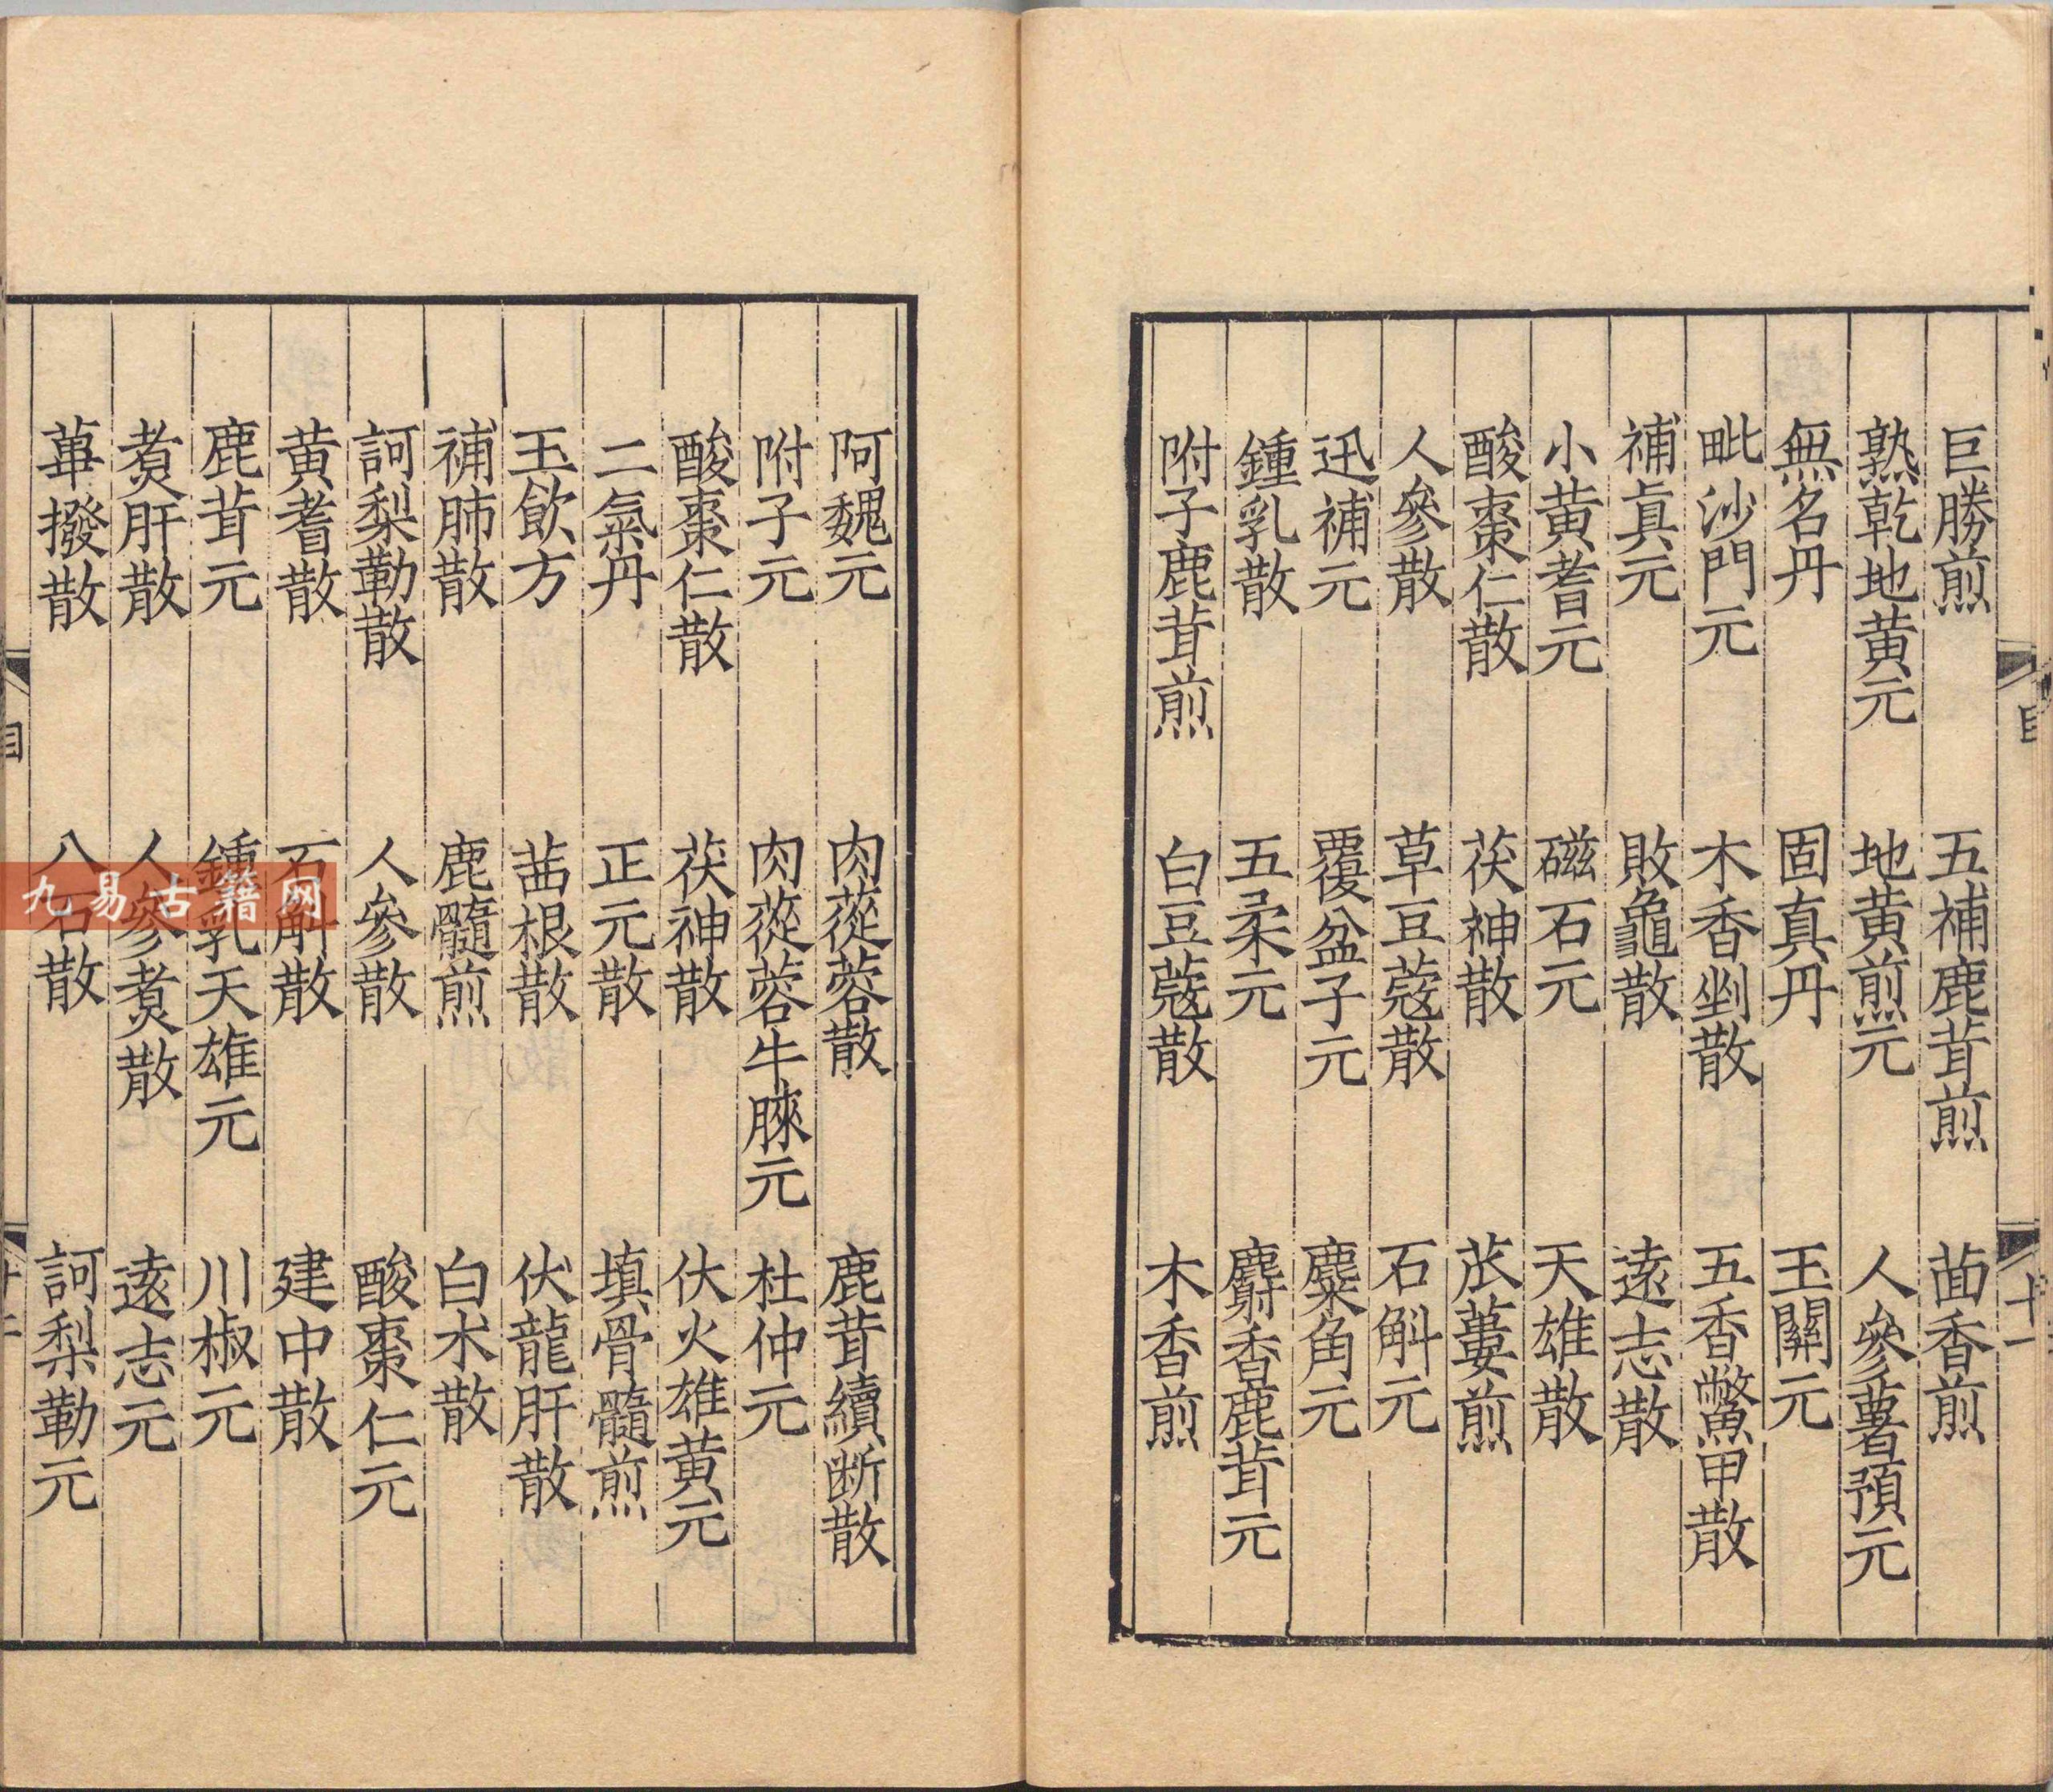 巨勝煎 五補鹿茸煎 茴香煎
熟乾地黄元 地黄煎元 人參薯預元
無名丹 固真丹 玉關元
毗沙門元 木香剉散 五香鱉甲散
補真元 敗龜散 遠志散
小黄耆元 磁石元 天雄散
酸棗仁散 茯神散 苽蔞煎
人參散 草豆蔻散 石斛元
迅補元 覆盆子元 麋角元
鍾乳散 五柔元 麝香鹿茸元
附子鹿茸煎 白豆蔻散 木香煎
目 十一
阿魏元 肉蓯蓉散 鹿茸續断散
附子元 肉蓯蓉牛膝元 杜仲元
酸棗仁散 茯神散 伏火雄黄元
二氣丹 正元散 填骨髓煎
玉飲方 茜根散 伏龍肝散
補肺散 鹿髓煎 白术散
訶梨勒散 人參散 酸棗仁元
黄耆散 石斛散 建中散
鹿茸元 鍾乳天雄元 川椒元
煑肝散 人參煑散 遠志元
蓽撥散 八石散 訶梨勒元
目
九易古籍网